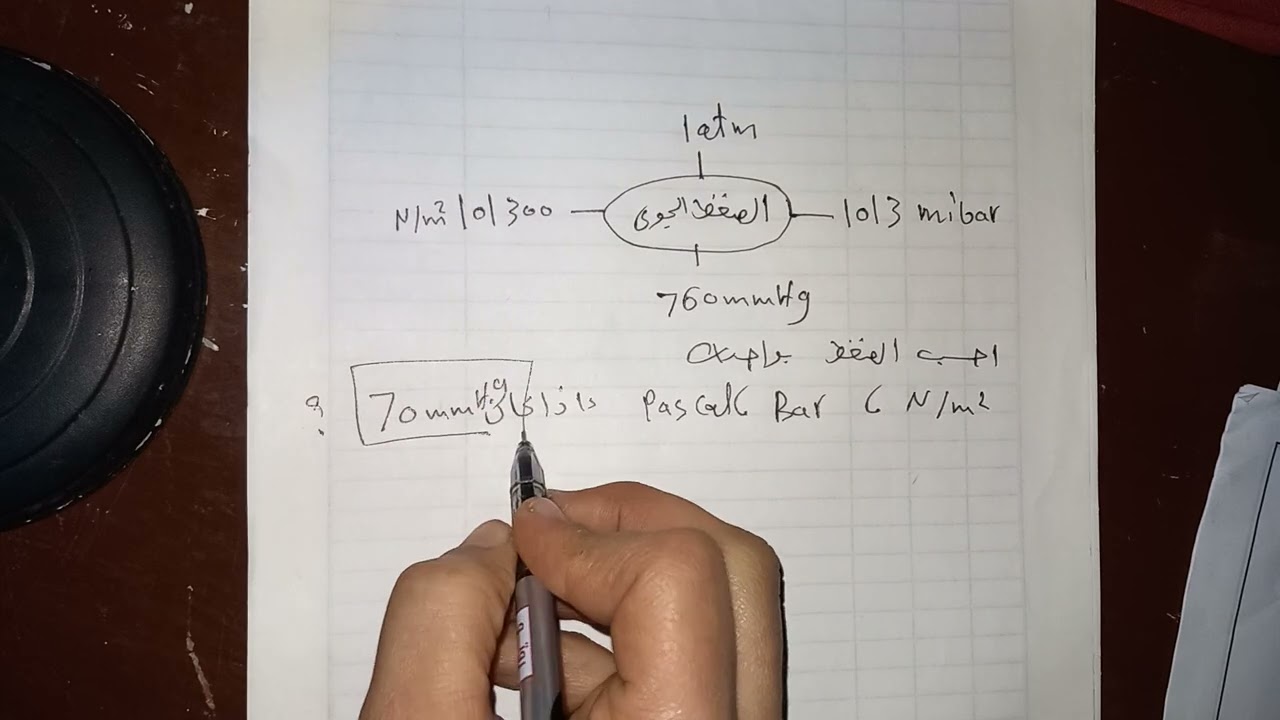 1atm
N/m² 101300 الضغط الجوى 1013 mibar
760mmHg
احسب الضغط بواحدة
N/m² ، Bar ، Pascal اذا كان 70mmHg ؟